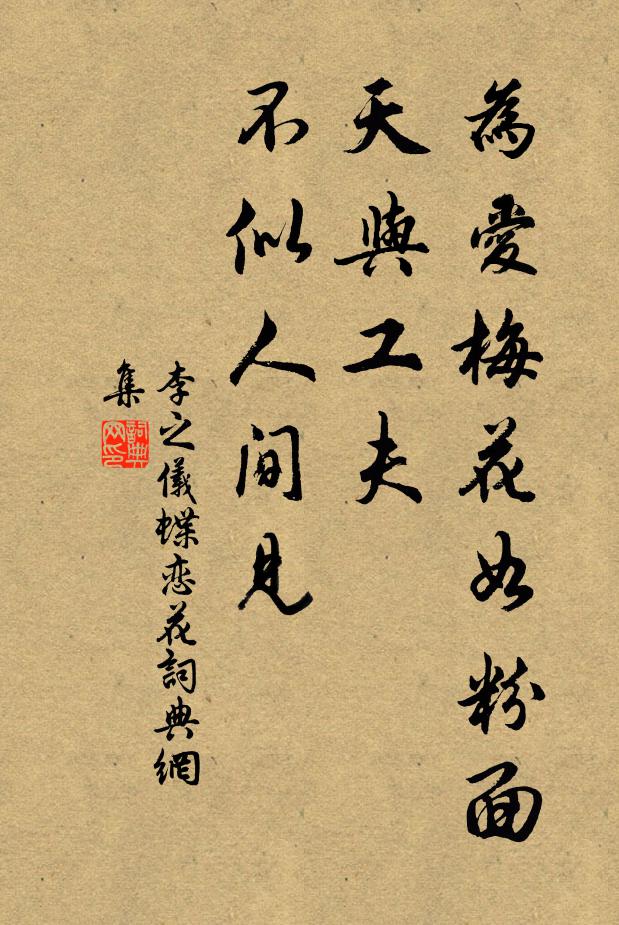 為愛梅花如粉面
天與工夫
不似人間見
李之儀蝶恋花詞典網
集
詞典
网印